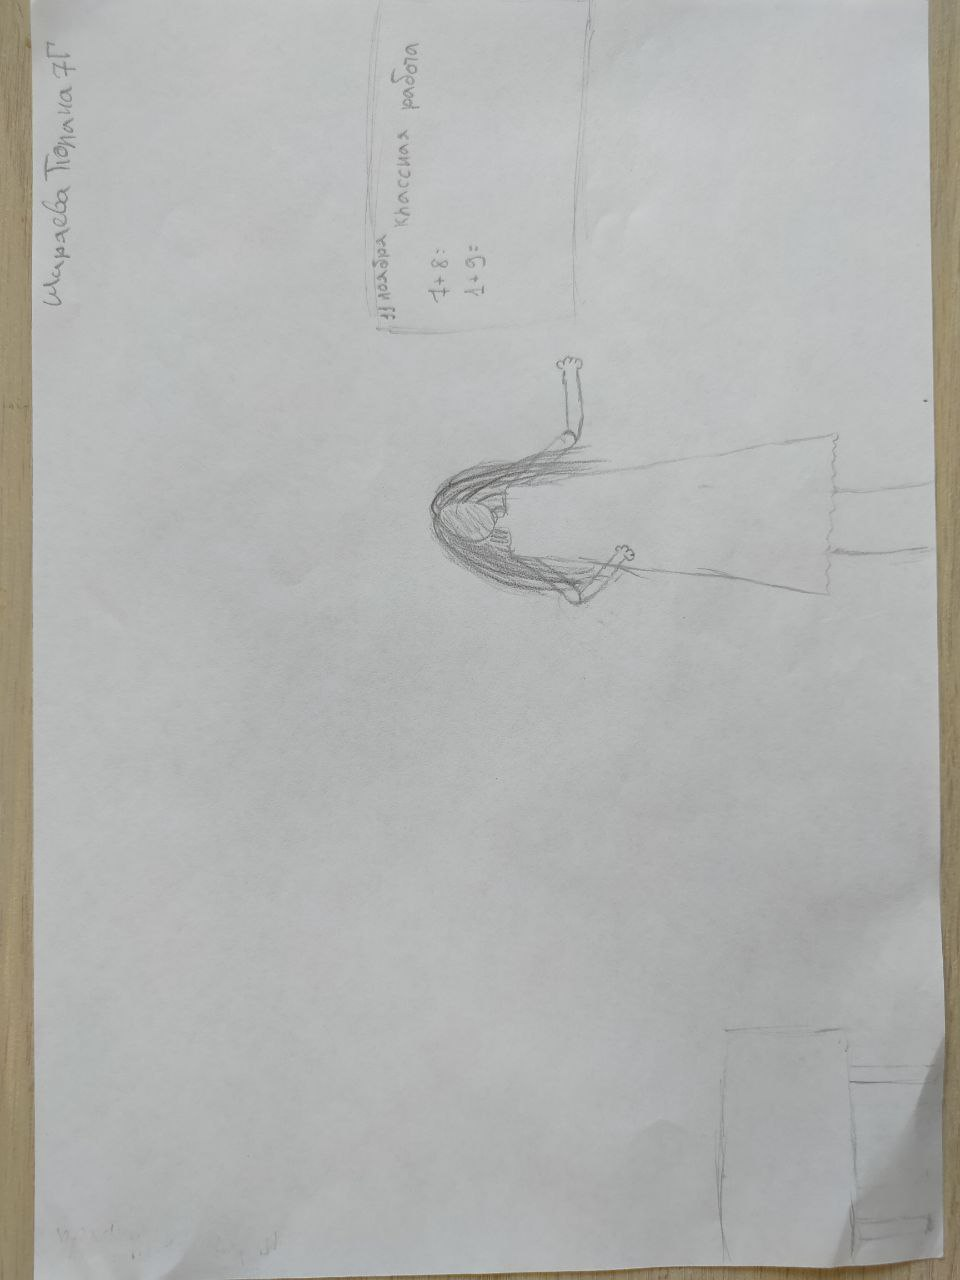 Шараева Гюрана 7Г
11 ноября
классная работа
7+8=
1+9=